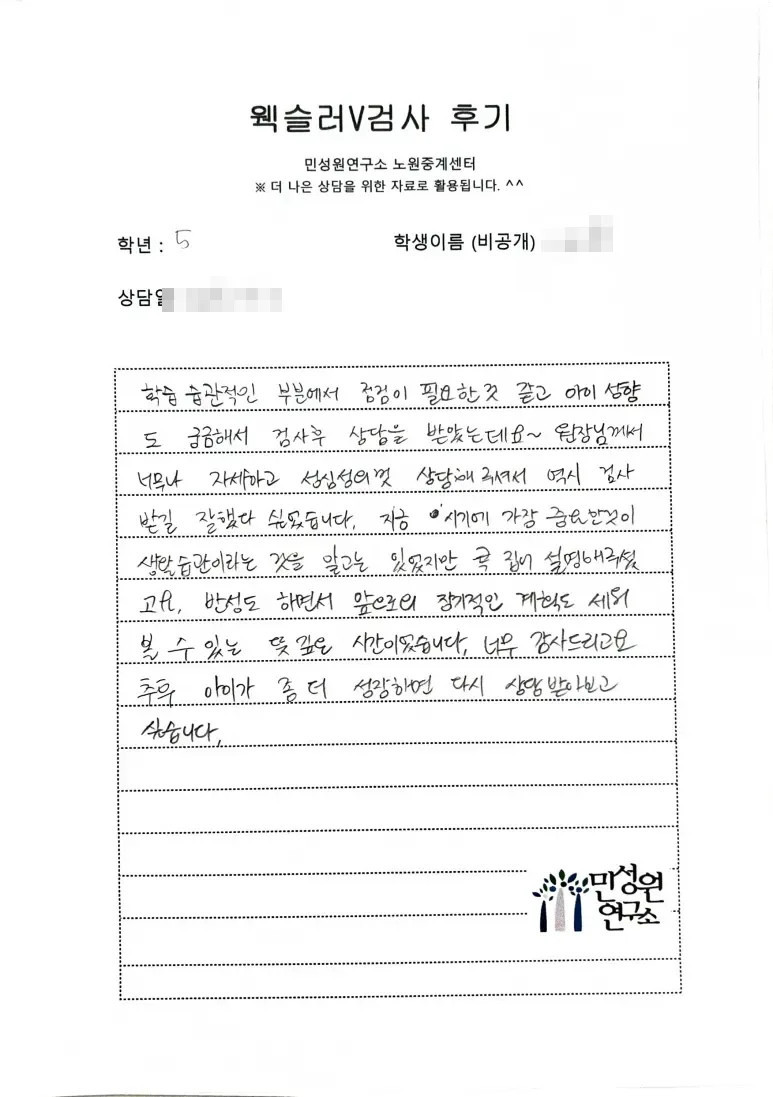 웩슬러V검사 후기
민성원연구소 노원중계센터
※ 더 나은 상담을 위한 자료로 활용됩니다. ^^
학년 : 5
학생이름 (비공개)
상담일
학습 습관적인 부분에서 점검이 필요한것 같고 아이 성향
도 궁금해서 검사후 상담을 받았는데요~ 원장님께서
너무나 자세하고 성심성의껏 상담해 주셔서 역시 검사
받길 잘했다 싶었습니다. 지금 시기에 가장 중요한것이
생활습관이라는 것을 알고는 있었지만 콕 집어 설명해주셨
고요, 반성도 하면서 앞으로의 장기적인 계획도 세워
볼 수 있는 뜻 깊은 시간이었습니다, 너무 감사드리고요
추후 아이가 좀 더 성장하면 다시 상담받아보고
싶습니다,
민성원
연구소